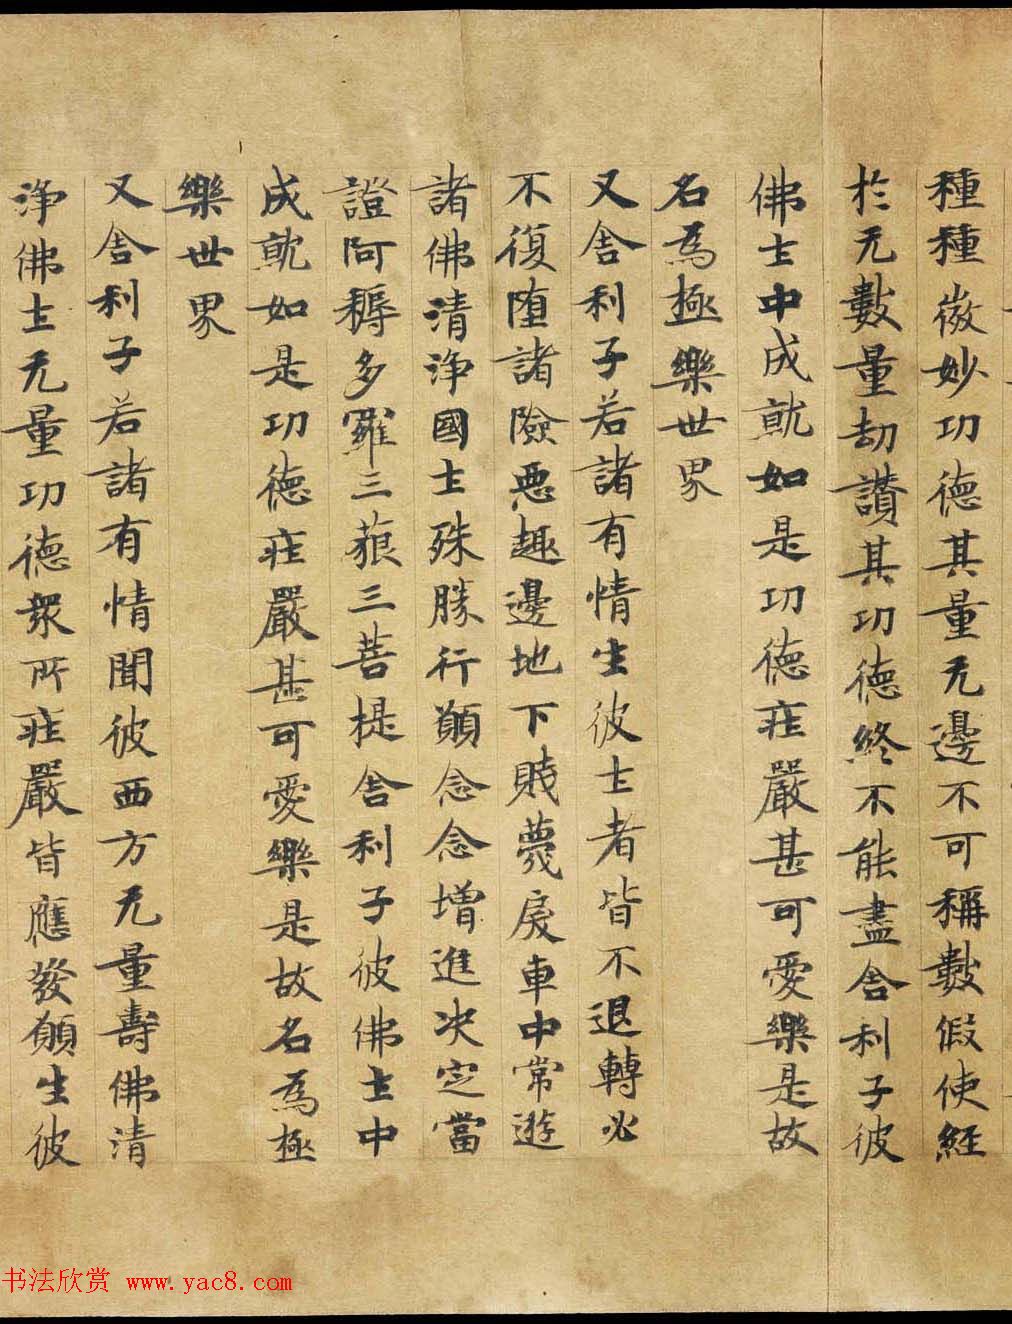 種種微妙功德其量无邊不可稱數假使經
於无數量劫讚其功德終不能盡舍利子彼
佛土中成就如是功德莊嚴甚可愛樂是故
名為極樂世界
又舍利子若諸有情生彼土者皆不退轉必
不復墮諸險惡趣邊地下賤蔑戾車中常遊
諸佛清淨國土殊勝行願念念增進決定當
證阿耨多羅三藐三菩提舍利子彼佛土中
成就如是功德莊嚴甚可愛樂是故名為極
樂世界
又舍利子若諸有情聞彼西方无量壽佛清
淨佛土无量功德眾所莊嚴皆應發願生彼
书法欣赏 www.yac8.com